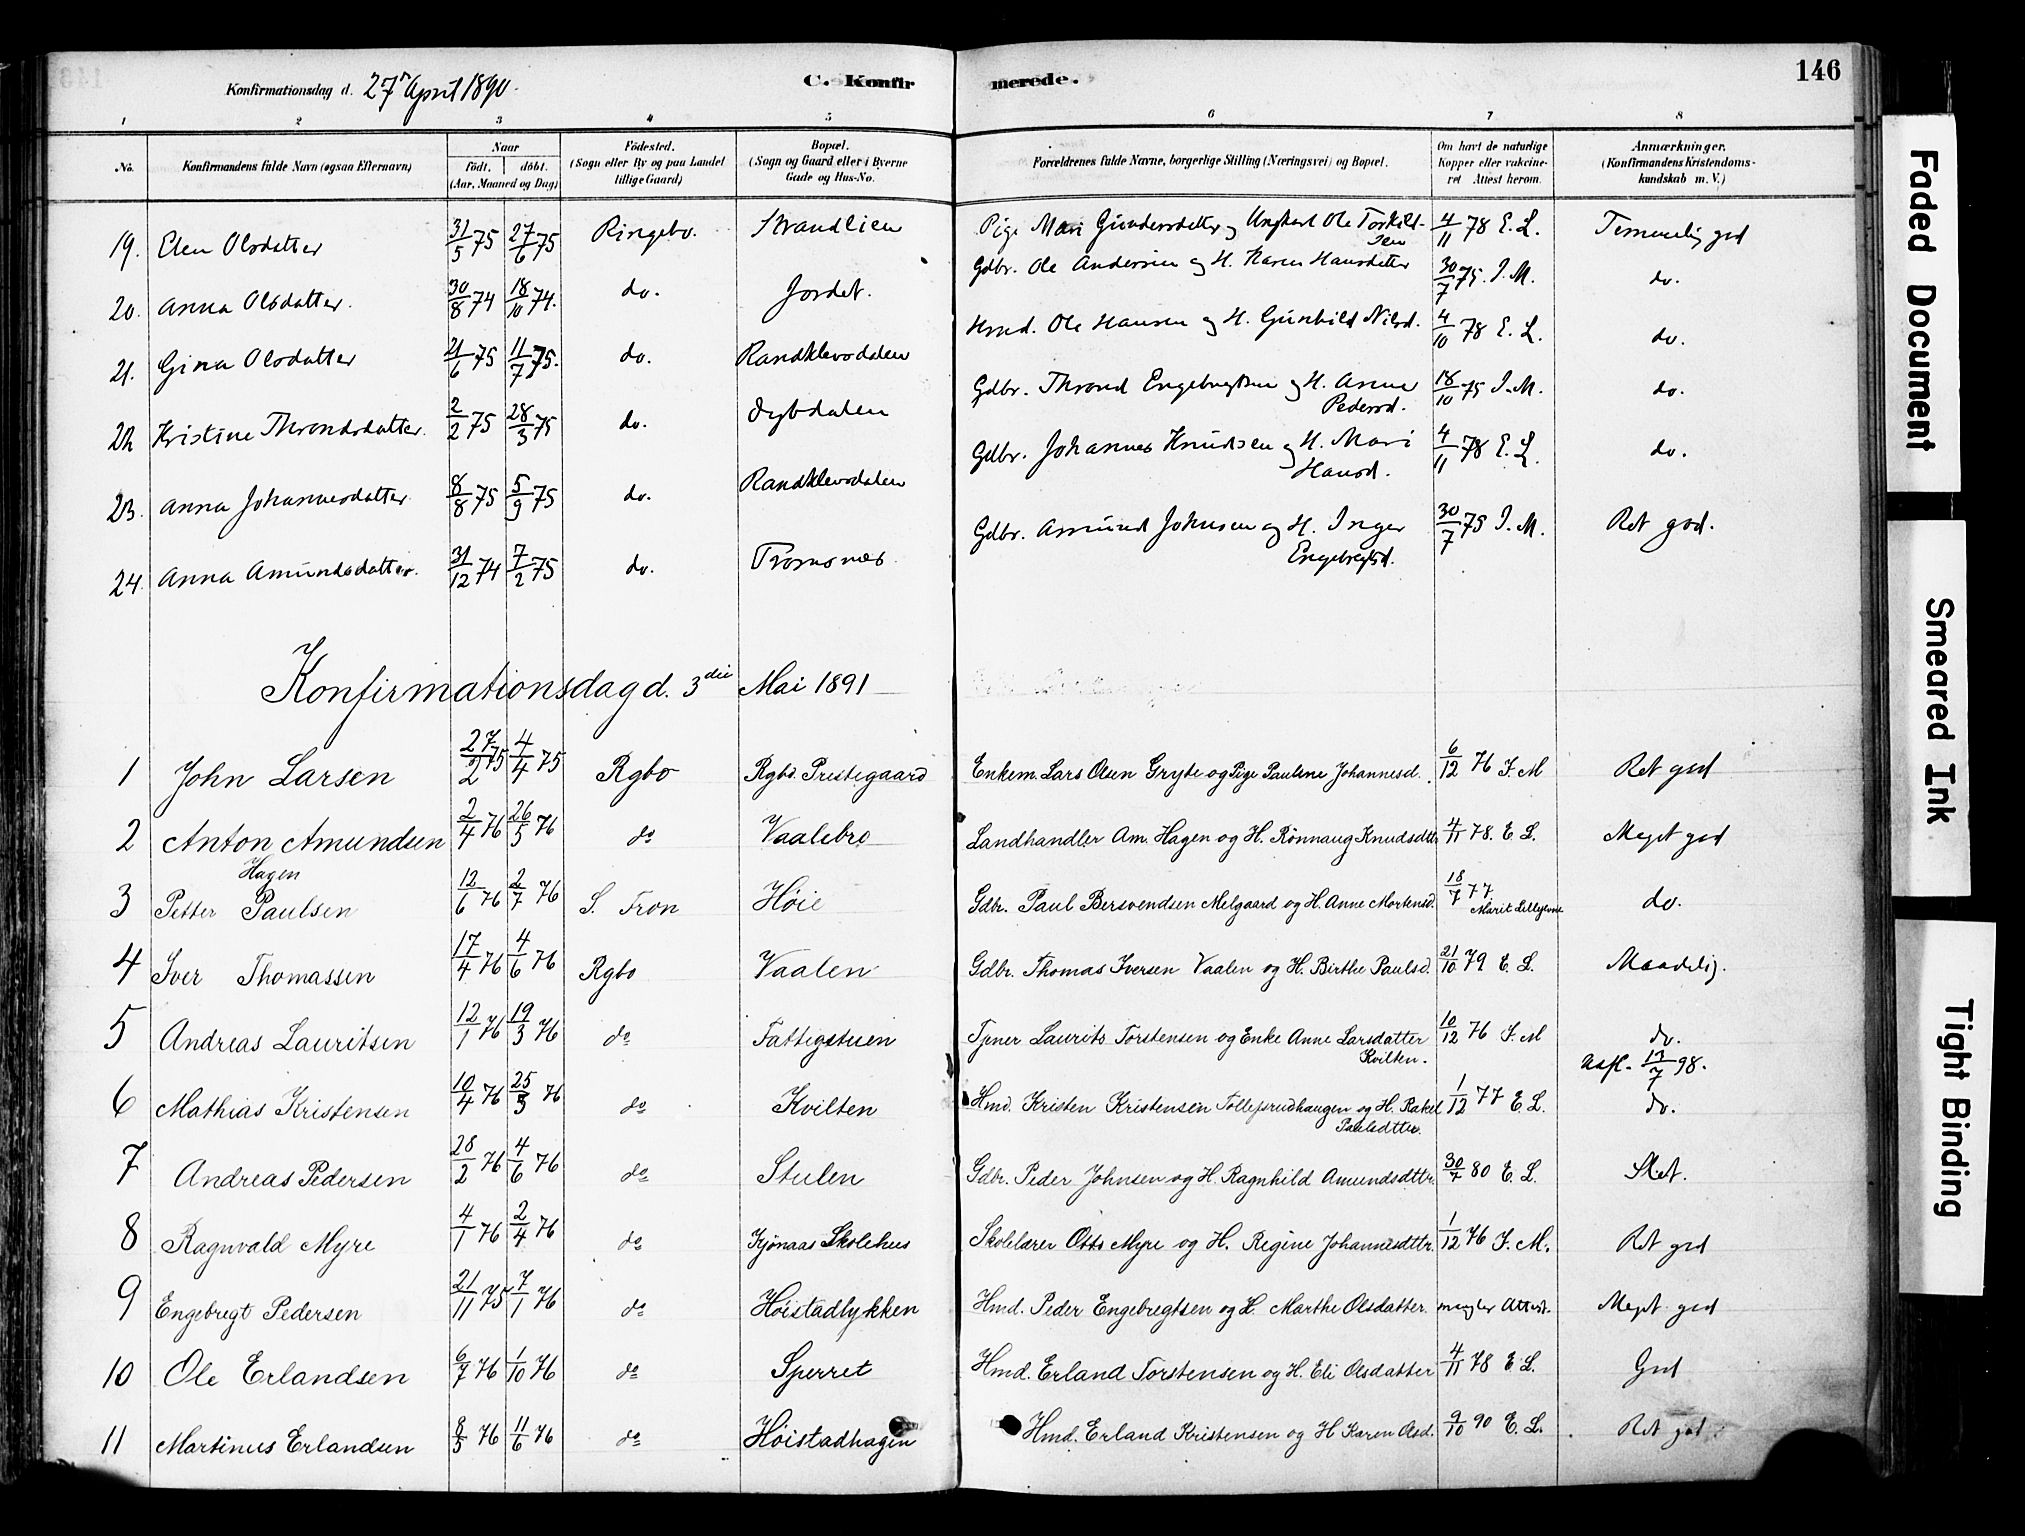 Konfirmationsdag d. 27 April 1890.
C. Konfirmerede.
146
1 2 3 4 5 6 7 8
No.
Konfirmandens fulde Navn (ogsaa Efternavn)
Naar
født. døbt.
(Aar, Maaned og Dag)
Fødested.
(Sogn eller By og paa Landet
tillige Gaard)
Bopæl.
(Sogn og Gaard eller i Byerne
Gade og Hus-No.
Forældrenes fulde Navne, borgerlige Stilling (Næringsvei) og Bopæl.
Om havt de naturlige
Kopper eller vakcine-
ret Attest herom.
Anmærkninger.
(Konfirmandens Kristendoms-
kundskab m. V.)
19. Elen Olsdatter 31/5 75 27/6 75 Ringebo. Strandlien Pige Mari Gundersdatter og Ungkarl Ole Torkild-
sen 4/11 78 E. L. Temmelig god
20. Anna Olsdatter. 30/8 74 18/10 74. do. Jordet. Gdbr. Ole Andersen og H. Karen Hansdatter 30/7 75. J. M. do.
21. Gina Olsdatter 21/6 75 11/7 75. do. Randklevsdalen Hmd. Ole Hansen og H. Gunhild Nilsd. 4/10 78 E. L. do.
22 Kristine Throndsdatter. 2/2 75 28/3 75 do. Dybdalen Gdbr. Thrond Engebregtsen og H. Anne
Pedersd. 18/10 75 J. M. do.
23. Anna Johannesdatter 8/8 75 5/9 75 do. Randklevsdalen Gdbr. Johannes Knudsen og H. Mari
Hansd. 4/11 78 E. L. do.
24. Anna Amundsdatter. 31/12 74 7/2 75 do. Tromsnes Gdbr. Amund Johnsen og H. Inger
Engebregtsd. 30/7 75 J. M. Ret god.
Konfirmationsdag d. 3die Mai 1891
1 John Larsen 27/2 75 4/4 75 Rgbo Rgbo. Prestegaard Enkem. Lars Olsen Gryte og Pige Pauline Johannesd. 6/12 76 J. M Ret god
2 Anton Amundsen
Hagen 2/4 76 26/5 76 do Vaalebro Landhandler Am. Hagen og H. Rønnaug Knudsdttr 4/11 78. E L. Meget god
3 Petter Paulsen 12/6 76 2/7 76 S. Fron Høie Gdbr. Paul Bersvendsen Melgaard og H. Anne Mortensd. 18/7 77 do.
4 Iver Thomassen 17/4 76 4/6 76 Rgbo Vaalen Gdbr. Thomas Iversen Vaalen og H. Birthe Paulsd. 21/10 79 E. L. Maadelig.
5 Andreas Lauritsen 12/1 76 19/3 76 do Fattigstuen Tjener Laurits Torstensen og Enke Anne Larsdatter
Kvilten. 10/12 76 J. M do.
6 Mathias Kristensen 10/4 76 25/5 76 do Kvilten Hmd. Kristen Kristensen Tollefsrudhaugen og H. Rakel
Paulsdttr. 1/12 77 E. L. do.
7 Andreas Pedersen 28/2 76 4/6 76 do Stulen Gdbr. Peder Johnsen og H. Ragnhild Amundsdttr. 30/7 80 E. L. Slet.
8 Ragnvald Myre 4/1 76 2/4 76 do Kjønaas Skolehus Skolelærer Otto Myre og H. Regine Johannesdttr. 1/12 76 J. M. Ret god
9 Engebregt Pedersen 21/11 75 7/1 76 do Høistadlykken Hmd. Peder Engebregtsen og H. Marthe Olsdatter. mangler Attest. Meget god
10 Ole Erlandsen 6/7 76 1/10 76 do Sperret Hmd. Erland Torstensen og H. Eli Olsdatter 4/11 78 E L. God
11 Martinus Erlandsen 8/5 76 11/6 76 do Høistadhagen Hmd. Erland Kristensen og H Karen Olsd. 9/10 90 E. L. Ret god
Faded Document
Smeared Ink
Tight Binding